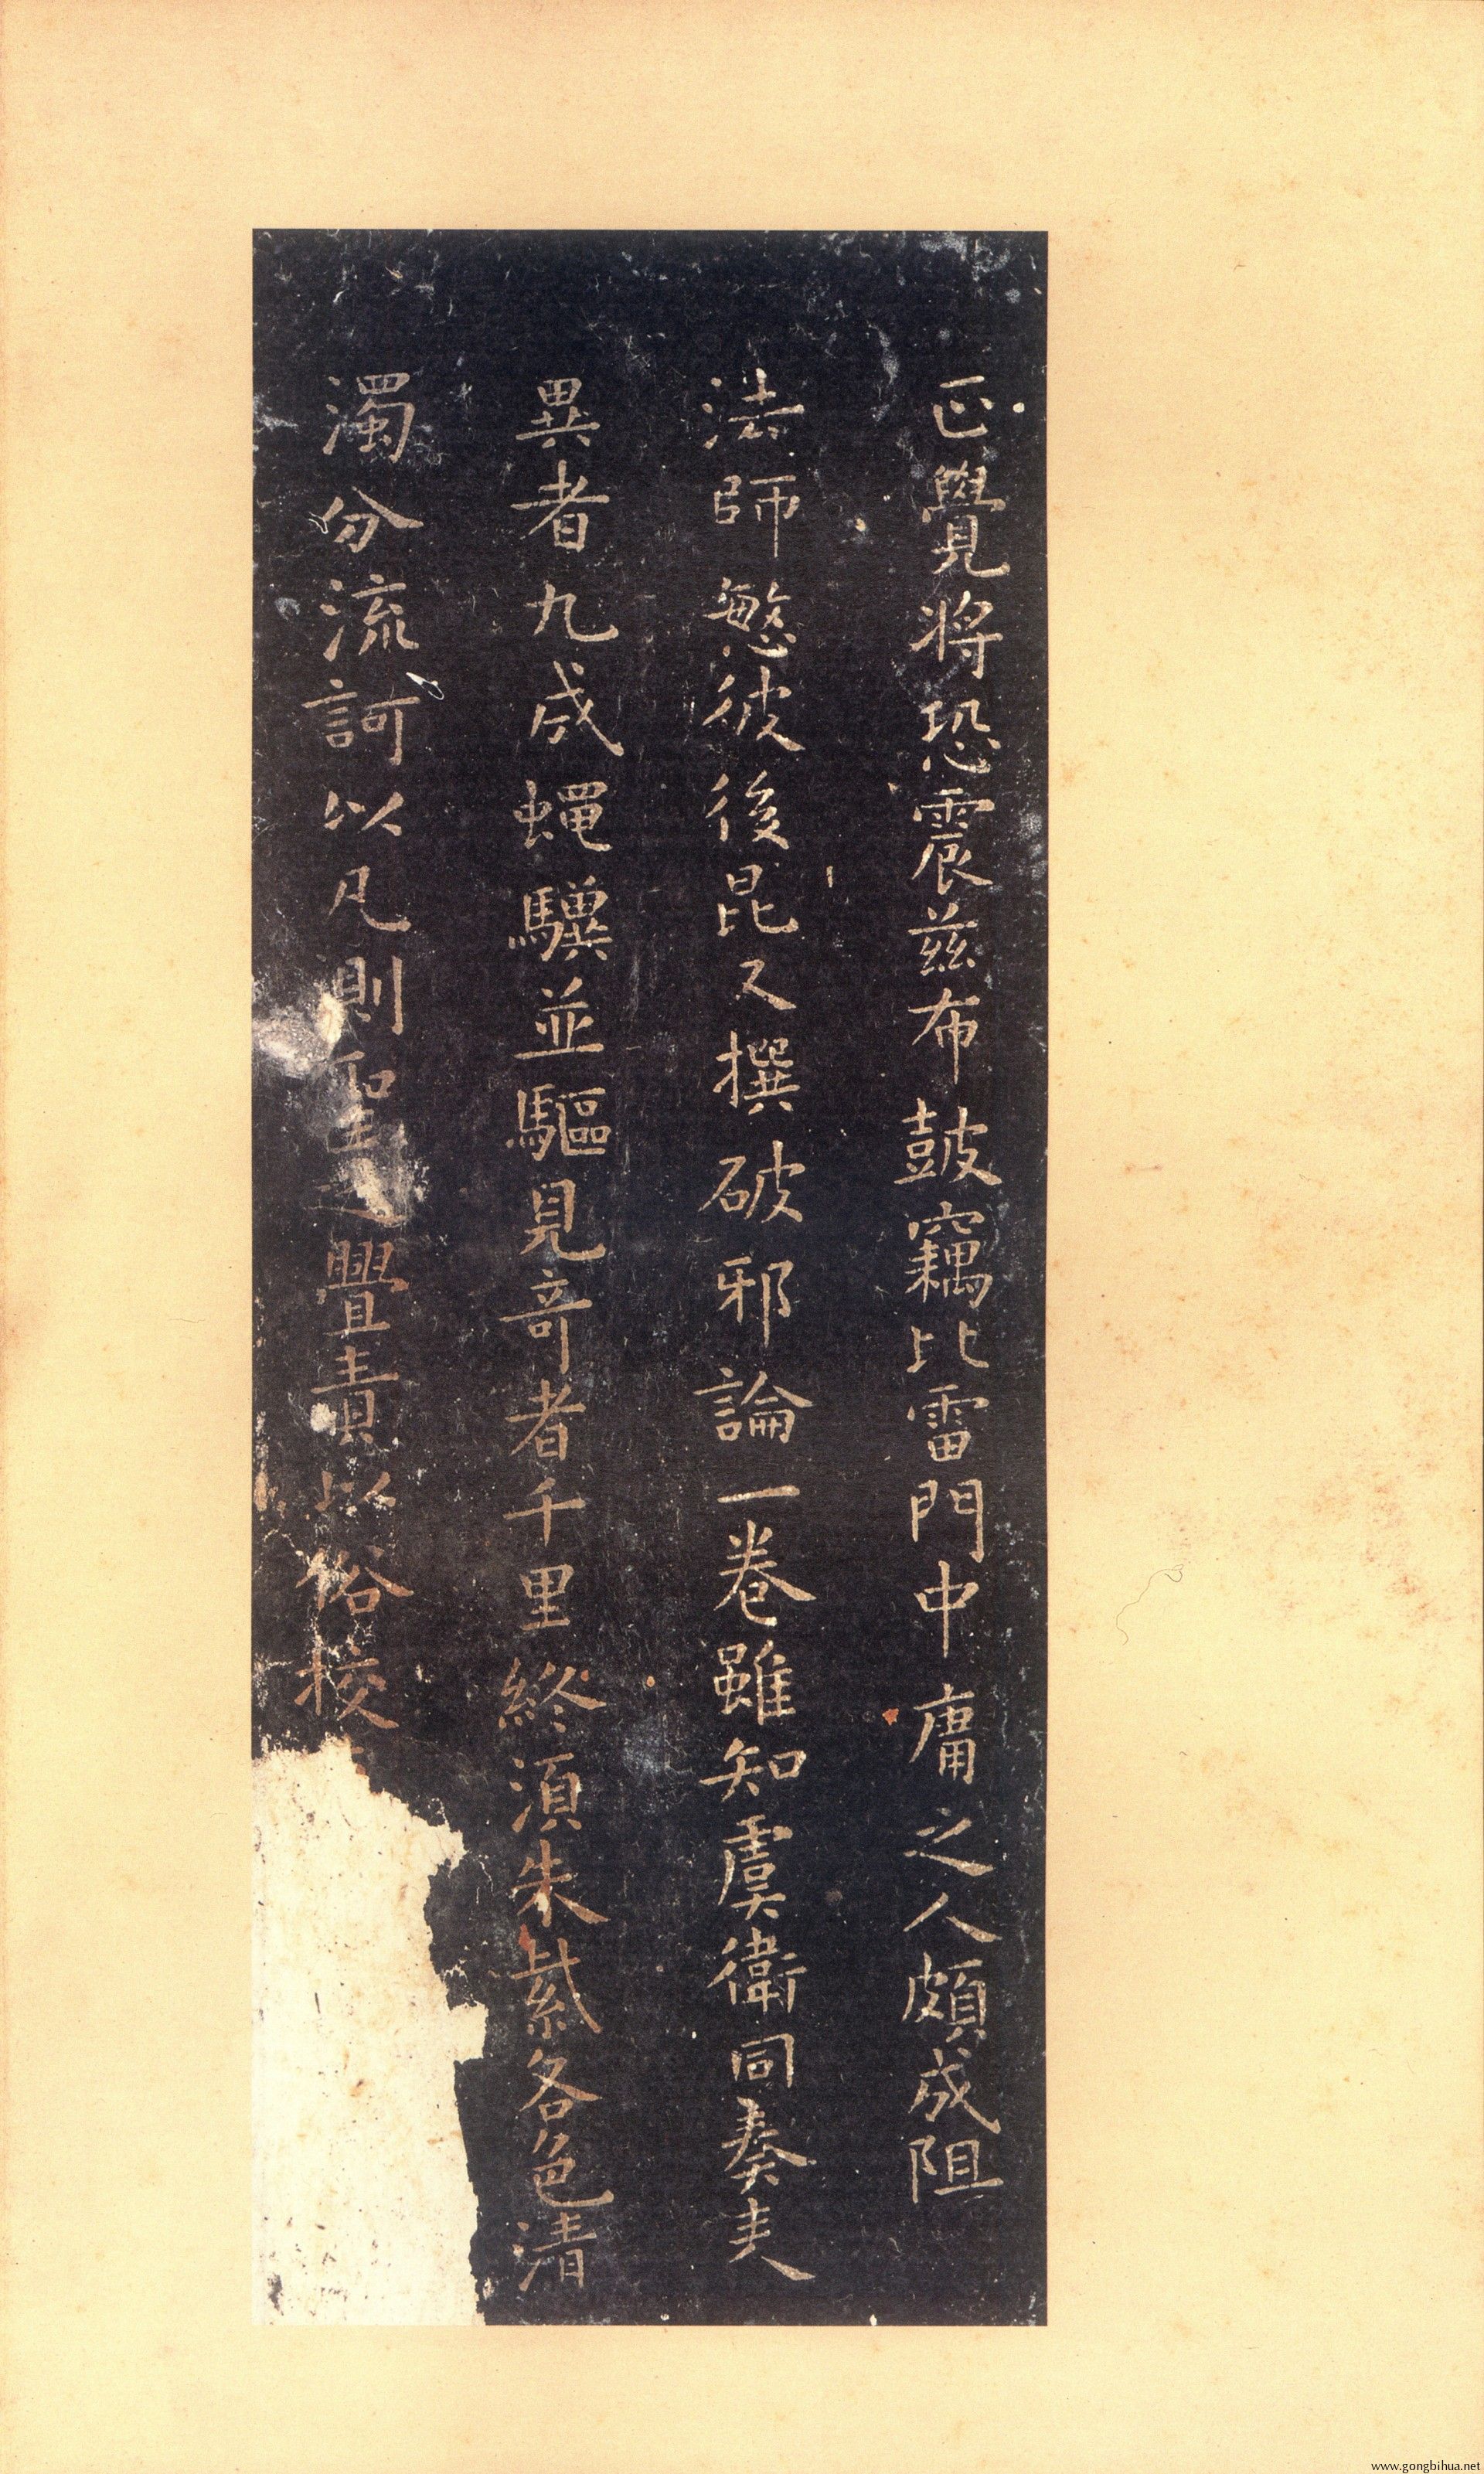 正覺將恐震茲布鼓竊比雷門中庸之人頗成阻
法師愍彼後昆又撰破邪論一卷雖知虞衛同奏夫
異者九成蠅驥並驅見奇者千里終須朱紫各色清
濁分流訶以凡測聖之舋責以俗校
www.gongbihua.net